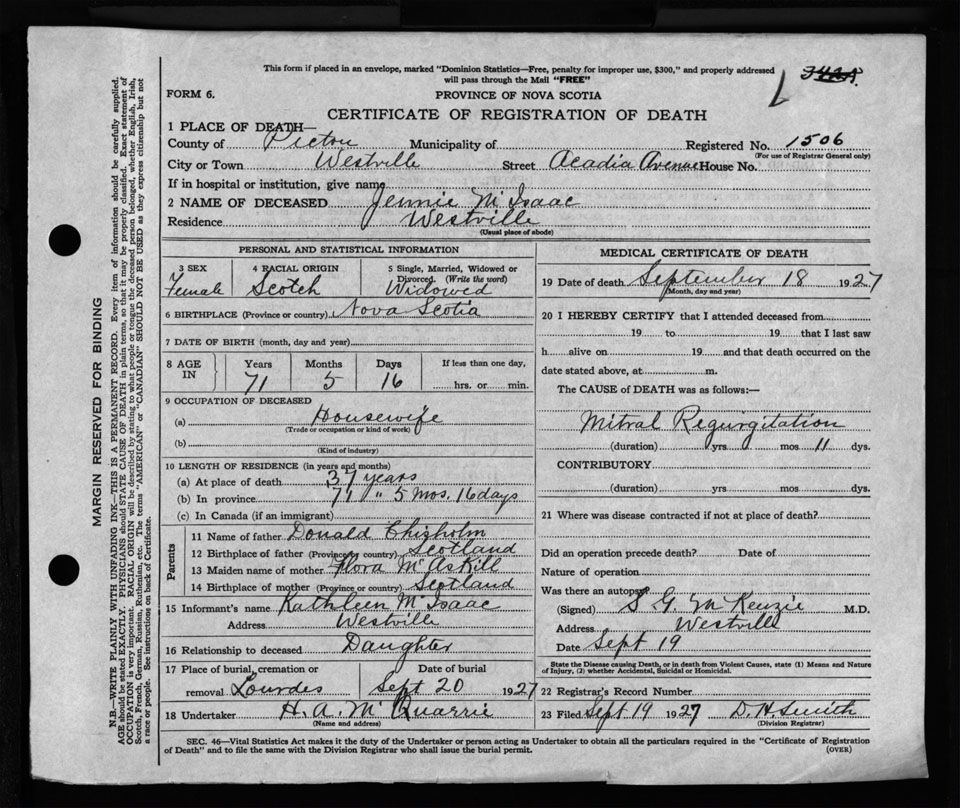 This form if placed in an envelope, marked "Dominion Statistics—Free, penalty for improper use, $300," and properly addressed
will pass through the Mail "FREE"
FORM 6.
PROVINCE OF NOVA SCOTIA
CERTIFICATE OF REGISTRATION OF DEATH
1 PLACE OF DEATH—
County of Pictou Municipality of Registered No. 1506
(For use of Registrar General only)
City or Town Westville Street Acadia Avenue House No.
If in hospital or institution, give name
2 NAME OF DECEASED Jennie McIsaac
Residence Westville
(Usual place of abode)
PERSONAL AND STATISTICAL INFORMATION
3 SEX
Female
4 RACIAL ORIGIN
Scotch
5 Single, Married, Widowed or
Divorced. (Write the word)
Widowed
6 BIRTHPLACE (Province or country) Nova Scotia
7 DATE OF BIRTH (month, day and year)
8 AGE IN
Years Months Days If less than one day,
71 5 16 hrs. or min.
9 OCCUPATION OF DECEASED
(a) Housewife
(Trade or occupation or kind of work)
(b)
(Kind of industry)
10 LENGTH OF RESIDENCE (in years and months)
(a) At place of death 37 years
(b) In province 71 " 5 mos. 16 days
(c) In Canada (if an immigrant)
Parents
11 Name of father Donald Chisholm
12 Birthplace of father (Province or country) Scotland
13 Maiden name of mother Flora McAskill
14 Birthplace of mother (Province or country) Scotland
15 Informant's name Kathleen McIsaac
Address Westville
16 Relationship to deceased Daughter
17 Place of burial, cremation or Date of burial
removal Lourdes Sept 20 1927
18 Undertaker H. A. McQuarrie
(Name and address)
MEDICAL CERTIFICATE OF DEATH
19 Date of death September 18 1927
(Month, day and year)
20 I HEREBY CERTIFY that I attended deceased from
19 to 19 that I last saw
h alive on 19 and that death occurred on the
date stated above, at m.
The CAUSE of DEATH was as follows:—
Mitral Regurgitation
(duration) yrs mos 11 dys.
CONTRIBUTORY
(duration) yrs mos dys.
21 Where was disease contracted if not at place of death?
Did an operation precede death? Date of
Nature of operation
Was there an autopsy?
(Signed) S G. McKenzie M.D.
Address Westville
Date Sept 19
State the Disease causing Death, or in death from Violent Causes, state (1) Means and Nature
of Injury, (2) whether Accidental, Suicidal or Homicidal.
22 Registrar's Record Number
23 Filed Sept 19 1927 D. H. Smith
(Division Registrar)
SEC. 46—Vital Statistics Act makes it the duty of the Undertaker or person acting as Undertaker to obtain all the particulars required in the "Certificate of Registration
of Death" and to file the same with the Division Registrar who shall issue the burial permit.
(OVER)
MARGIN RESERVED FOR BINDING
N.B.—WRITE PLAINLY WITH UNFADING INK—THIS IS A PERMANENT RECORD. Every item of information should be carefully supplied.
AGE should be stated EXACTLY. PHYSICIANS should STATE CAUSE OF DEATH in plain terms, so that it may be properly classified. Exact statement of
OCCUPATION is very important. RACIAL ORIGIN will be described by stating to what people or tongue the deceased person belonged, whether English, Irish,
Scotch, French, German, Russian, Ruthenian, etc. The terms "AMERICAN" or "CANADIAN" SHOULD NOT BE USED as they express citizenship but not
a race or people. See instructions on back of Certificate.